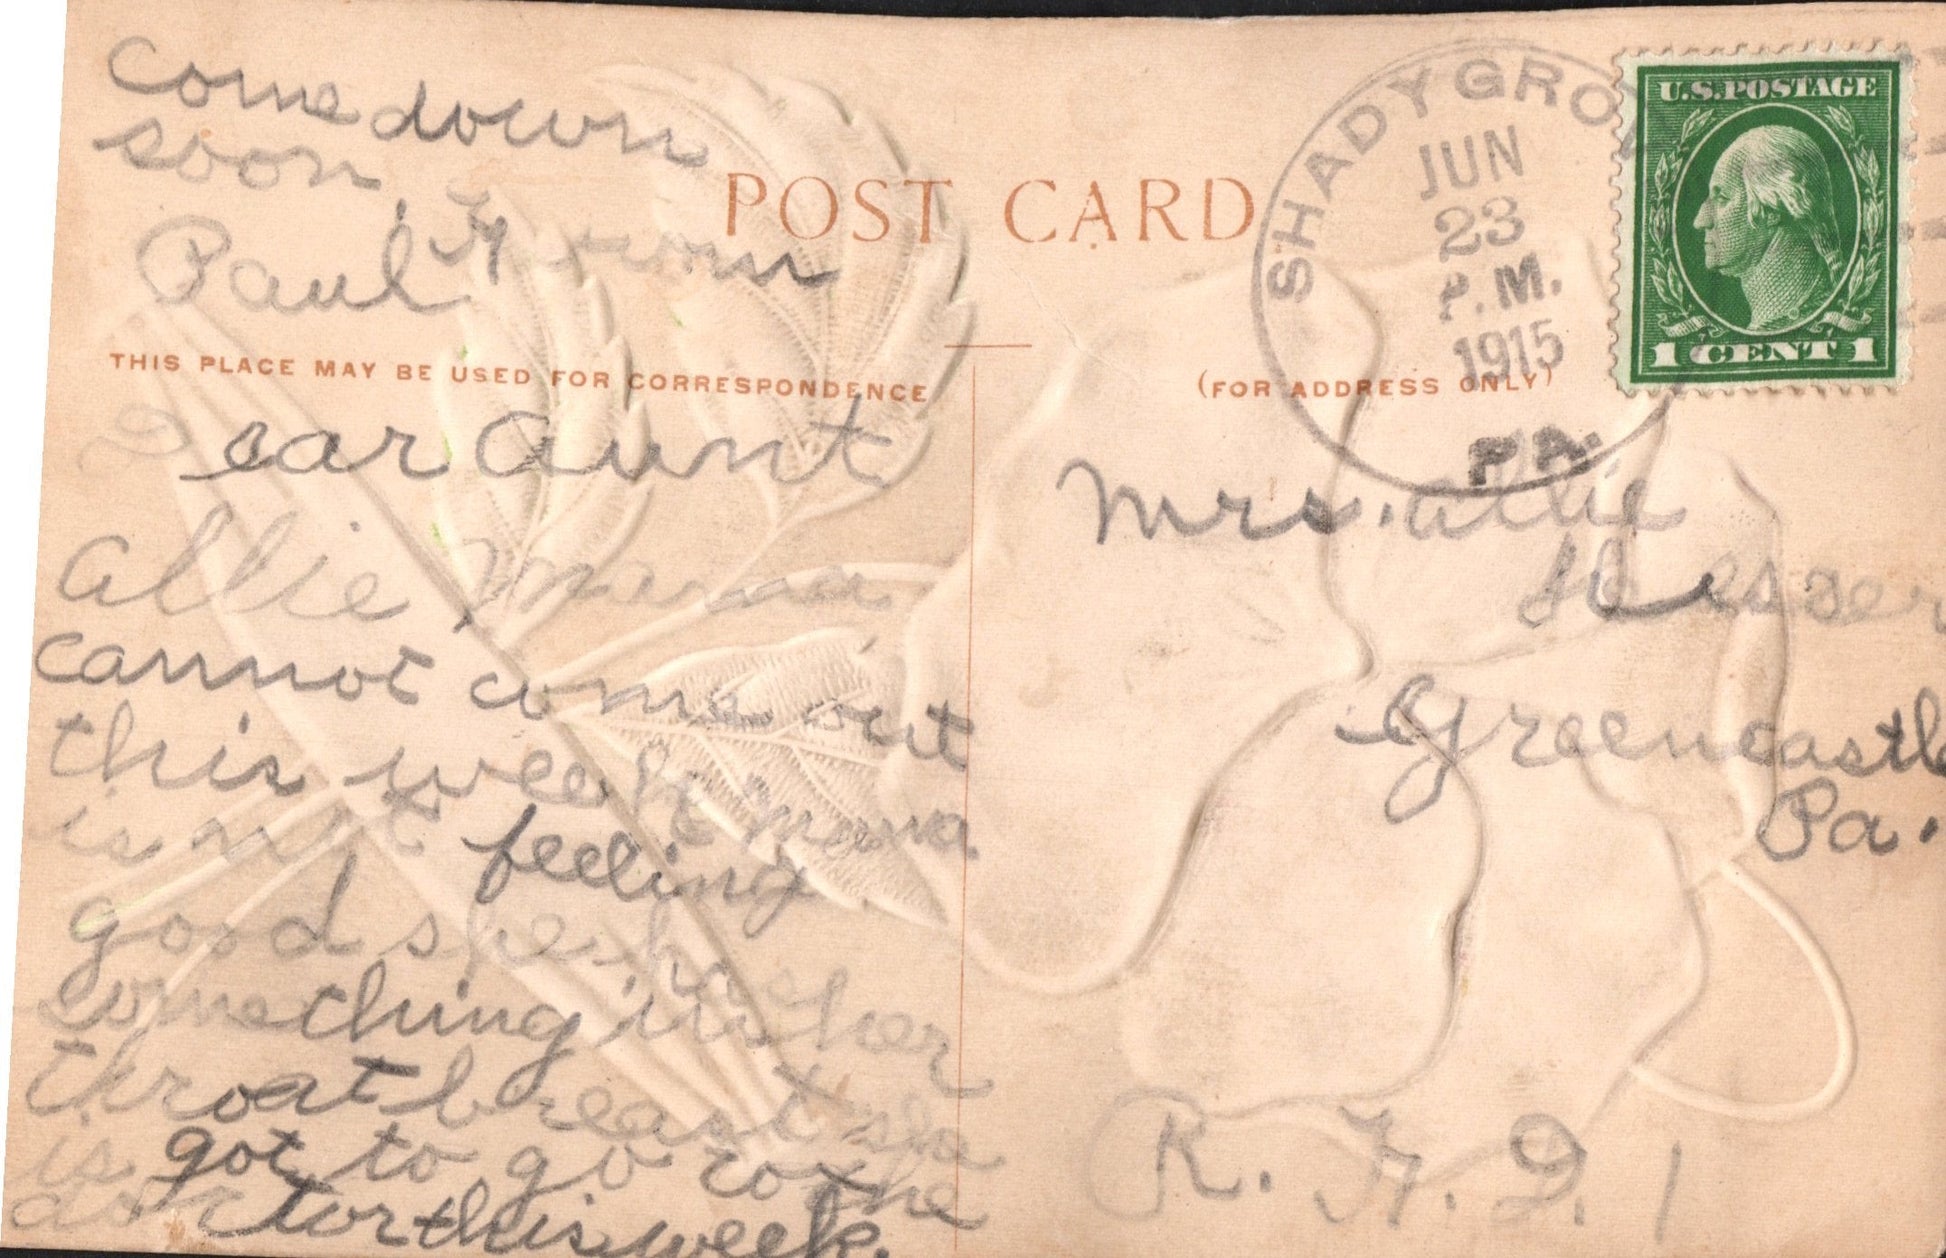 come down
soon.
Paul
POST CARD
SHADYGRO
JUN
23
P.M.
1915
PA.
U.S. POSTAGE
1 CENT 1
THIS PLACE MAY BE USED FOR CORRESPONDENCE
(FOR ADDRESS ONLY)
Dear Aunt
Allie, Mama
cannot come out
this week mama
is not feeling
good she has
something in her
throat breast she
is got to go to the
doctor this week.
Mrs. Allie
Greencastle
Pa.
R. F. D. 1